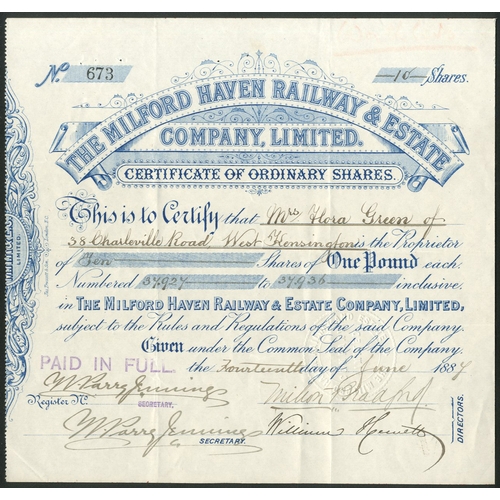 No. 673
10 Shares.
THE MILFORD HAVEN RAILWAY & ESTATE
COMPANY, LIMITED.
CERTIFICATE OF ORDINARY SHARES.
This is to Certify that Mrs Flora Green of
38 Charleville Road, West Kensington is the Proprietor
of Ten Shares of One Pound each.
Numbered 37927 to 37936 inclusive,
in THE MILFORD HAVEN RAILWAY & ESTATE COMPANY, LIMITED,
subject to the Rules and Regulations of the said Company.
Given under the Common Seal of the Company.
PAID IN FULL.
the Fourteenth day of June 1887
W Parry Jennings
SECRETARY.
Register No.
W Parry Jennings
SECRETARY.
William Hewett
DIRECTORS.
LIMITED